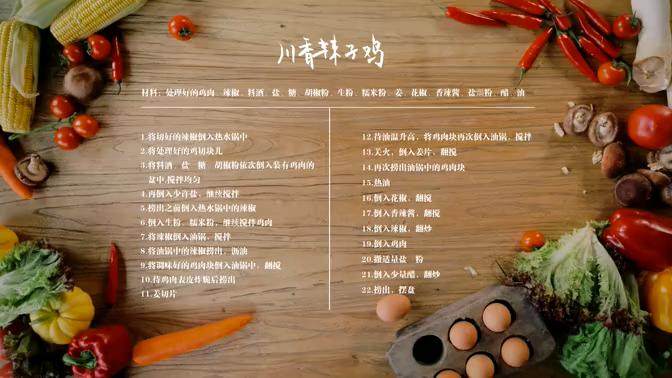 川香辣子鸡
材料：处理好的鸡肉、辣椒、料酒、盐、糖、胡椒粉、生粉、糯米粉、姜、花椒、香辣酱、盐、粉、醋、油
1.将切好的辣椒倒入热水锅中
2.将处理好的鸡切块儿
3.将料酒、盐、糖、胡椒粉依次倒入装有鸡肉的
盆中,搅拌均匀
4.再倒入少许盐，继续搅拌
5.捞出之前倒入热水锅中的辣椒
6.倒入生粉、糯米粉，继续搅拌鸡肉
7.将辣椒倒入油锅，搅拌
8.将油锅中的辣椒捞出，沥油
9.将调味好的鸡肉块倒入油锅中，翻搅
10.待鸡肉表皮炸脆后捞出
11.姜切片
12.待油温升高，将鸡肉块再次倒入油锅，搅拌
13.关火，倒入姜片，翻搅
14.再次捞出油锅中的鸡肉块
15.热油
16.倒入花椒，翻搅
17.倒入香辣酱，翻搅
18.倒入辣椒，翻炒
19.倒入鸡肉
20.撒适量盐、粉
21.倒入少量醋，翻炒
22.捞出，摆盘